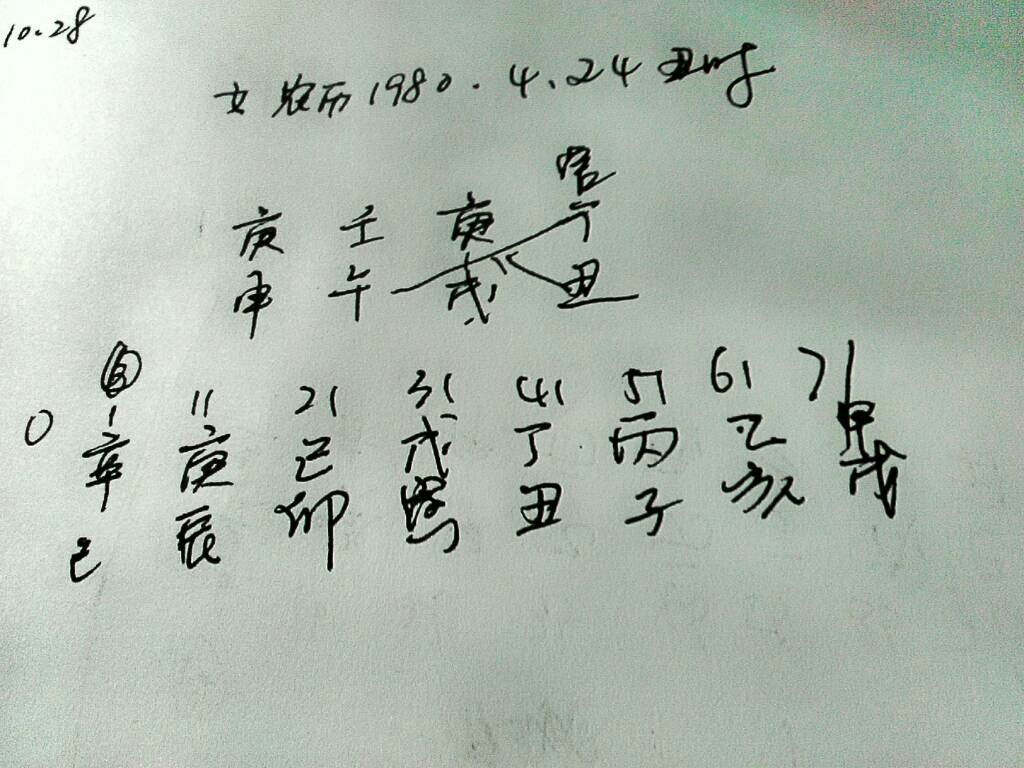 10.28
女 农历1980.4.24 丑时
官
庚 壬 庚 丁
申 午 戌 丑
0 1 11 21 31 41 51 61 71
辛 庚 己 戊 丁 丙 乙 甲
巳 辰 卯 寅 丑 子 亥 戌